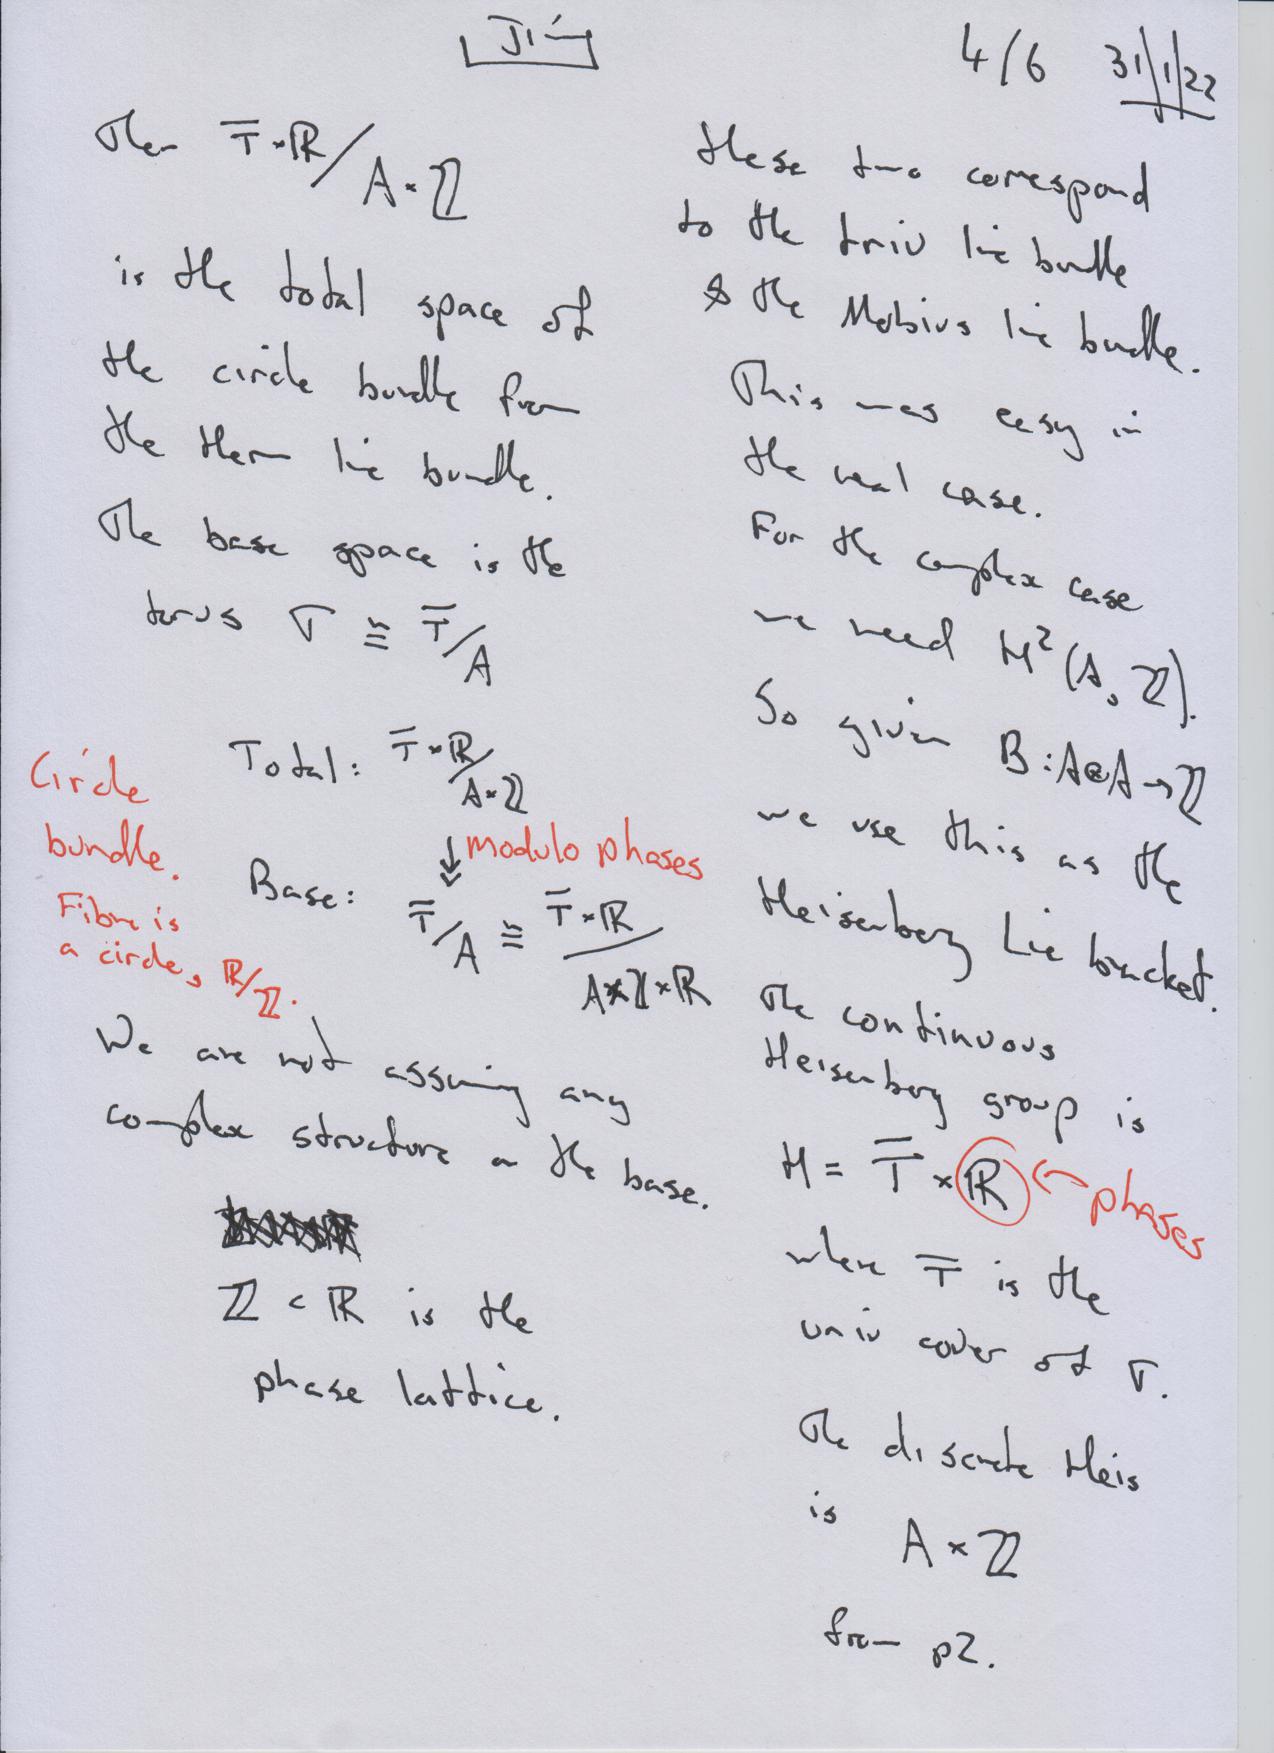 Jim
4/6 31/1/22
Then T̅ × ℝ / A × ℤ
is the total space of
the circle bundle from
the them line bundle.
The base space is the
torus T ≅ T̅ / A
Total: T̅ × ℝ / A × ℤ
modulo phases
Base: T̅ / A ≅ T̅ × ℝ / A × ℤ × ℝ
Circle
bundle.
Fibre is
a circle, ℝ/ℤ.
We are not assuming any
complex structure on the base.
ℤ < ℝ is the
phase lattice.
these two correspond
to the triv line bundle
& the Mobius line bundle.
This was easy in
the real case.
For the complex case
we need H²(A, ℤ).
So given B : A⊗A → ℤ
we use this as the
Heisenberg Lie bracket.
The continuous
Heisenberg group is
H = T̅ × ℝ ← phases
where T̅ is the
univ cover of T.
The discrete Heis
is A × ℤ
from p2.